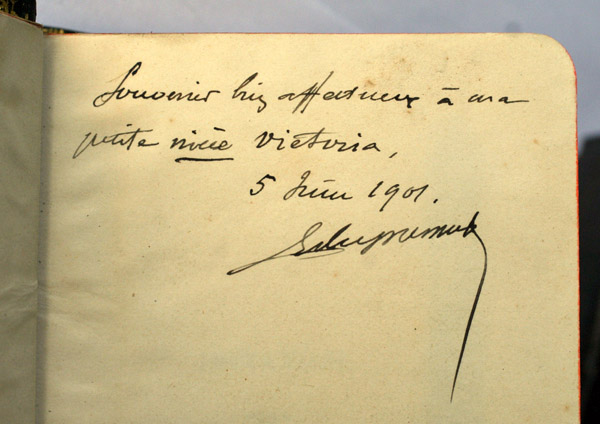 Souvenir bien affectueux à ma
petite nièce Victoria,
5 Juin 1901.